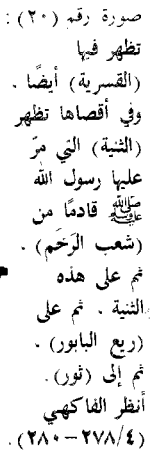 صورة رقم (٢٠) :
تظهر فيها
(القسرية) أيضًا .
وفي أقصاها تظهر
(الثنية) التي مرّ
عليها رسول الله
ﷺ قادمًا من
(شعب الرَخَم) .
ثم على هذه
الثنية . ثم على
(ريع البابور) .
ثم إلى (ثور).
أنظر الفاكهي
(٤/٢٧٨-٢٨٠).